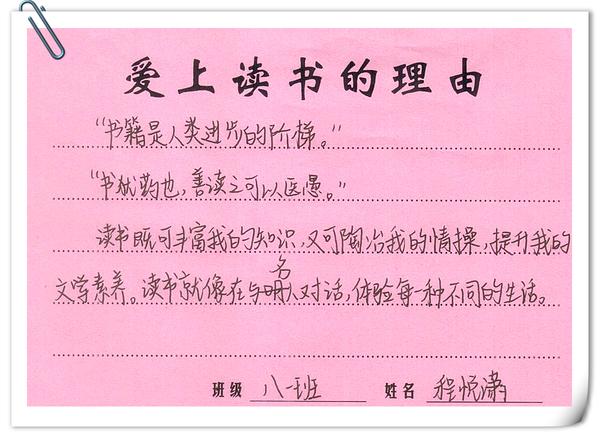 爱上读书的理由
“书籍是人类进步的阶梯。”
“书犹药也，善读之可以医愚。”
读书既可丰富我的知识，又可陶冶我的情操，提升我的
文学素养。读书就像在与名人对话，体验每一种不同的生活。
班级 八一班 姓名 程悦潇